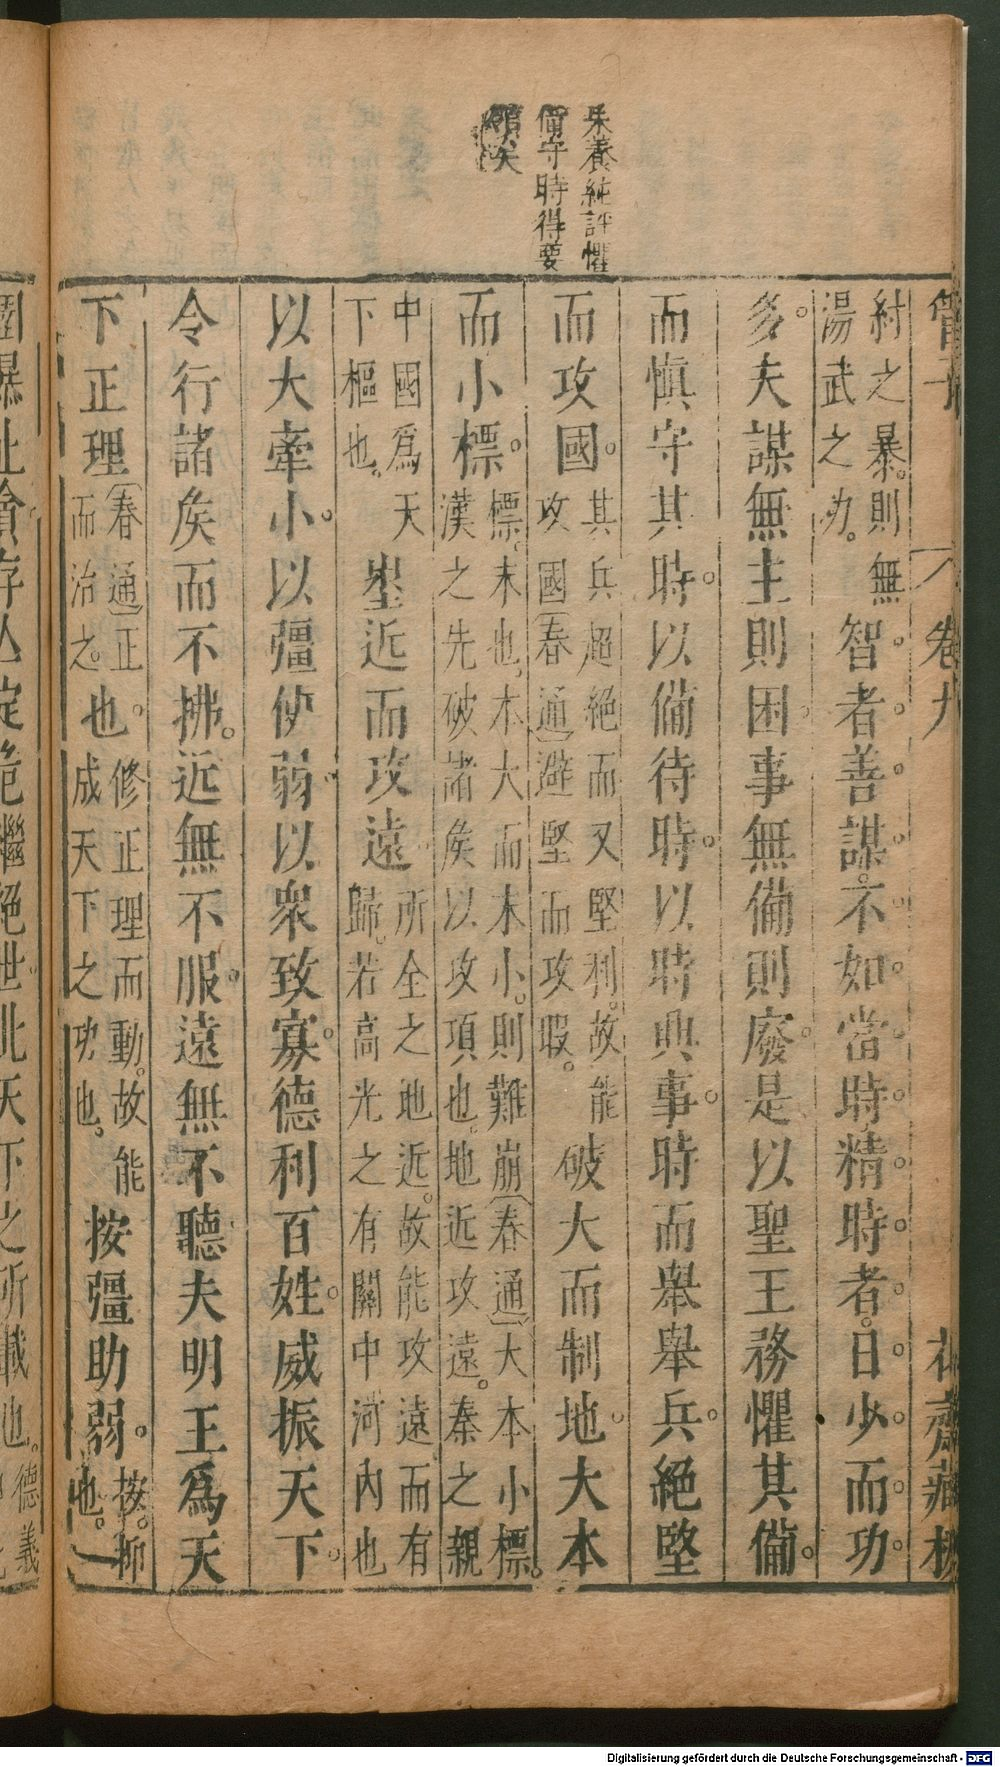 朱養純評懼
備守時得要
領矣
管子 卷九 花齋藏板
紂之暴。則無
湯武之功。
智者善謀。不如當時。精時者。日少而功
多。夫謀無主則困。事無備則廢。是以聖王務懼其備。
而慎守其時。以備待時。以時興事。時而舉舉兵。絕堅
而攻國。
其兵超絕而又堅利。故能
攻國(春通)避堅而攻暇。
破大而制地。大本
而小標。
標。末也。本大而末小。則難崩(春通)大本小標。
漢之先破諸侯以攻項也。地近攻遠。秦之親
中國為天
下樞也。
埊近而攻遠。
所全之地近。故能攻遠而有
歸。若高光之有關中河內也
以大牽小。以彊使弱。以眾致寡。德利百姓。威振天下。
令行諸侯而不拂。近無不服。遠無不聽夫明王為天
下正理
(春通)正
而治之。
也。
修正理而動。故能
成天下之功也。
按彊助弱。
按。抑
也。
圉暴止貪存亾定危繼絕世。此天下之所載也。
德義
Digitalisierung gefördert durch die Deutsche Forschungsgemeinschaft - DFG